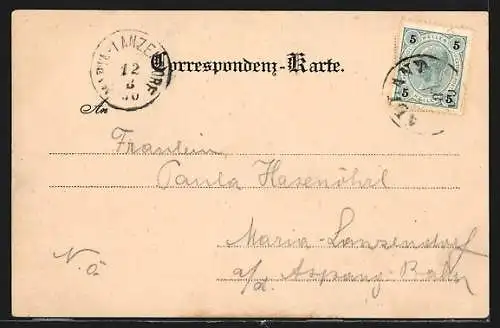 MARIA-LANZENDORF
12
8
00
Correspondenz-Karte.
5 HELLER 5
5 HELLER 5
An
Fräulein
Paula Hasenöhrl
Maria-Lanzendorf
N. Ö.
a/d. Aspang-Bahn